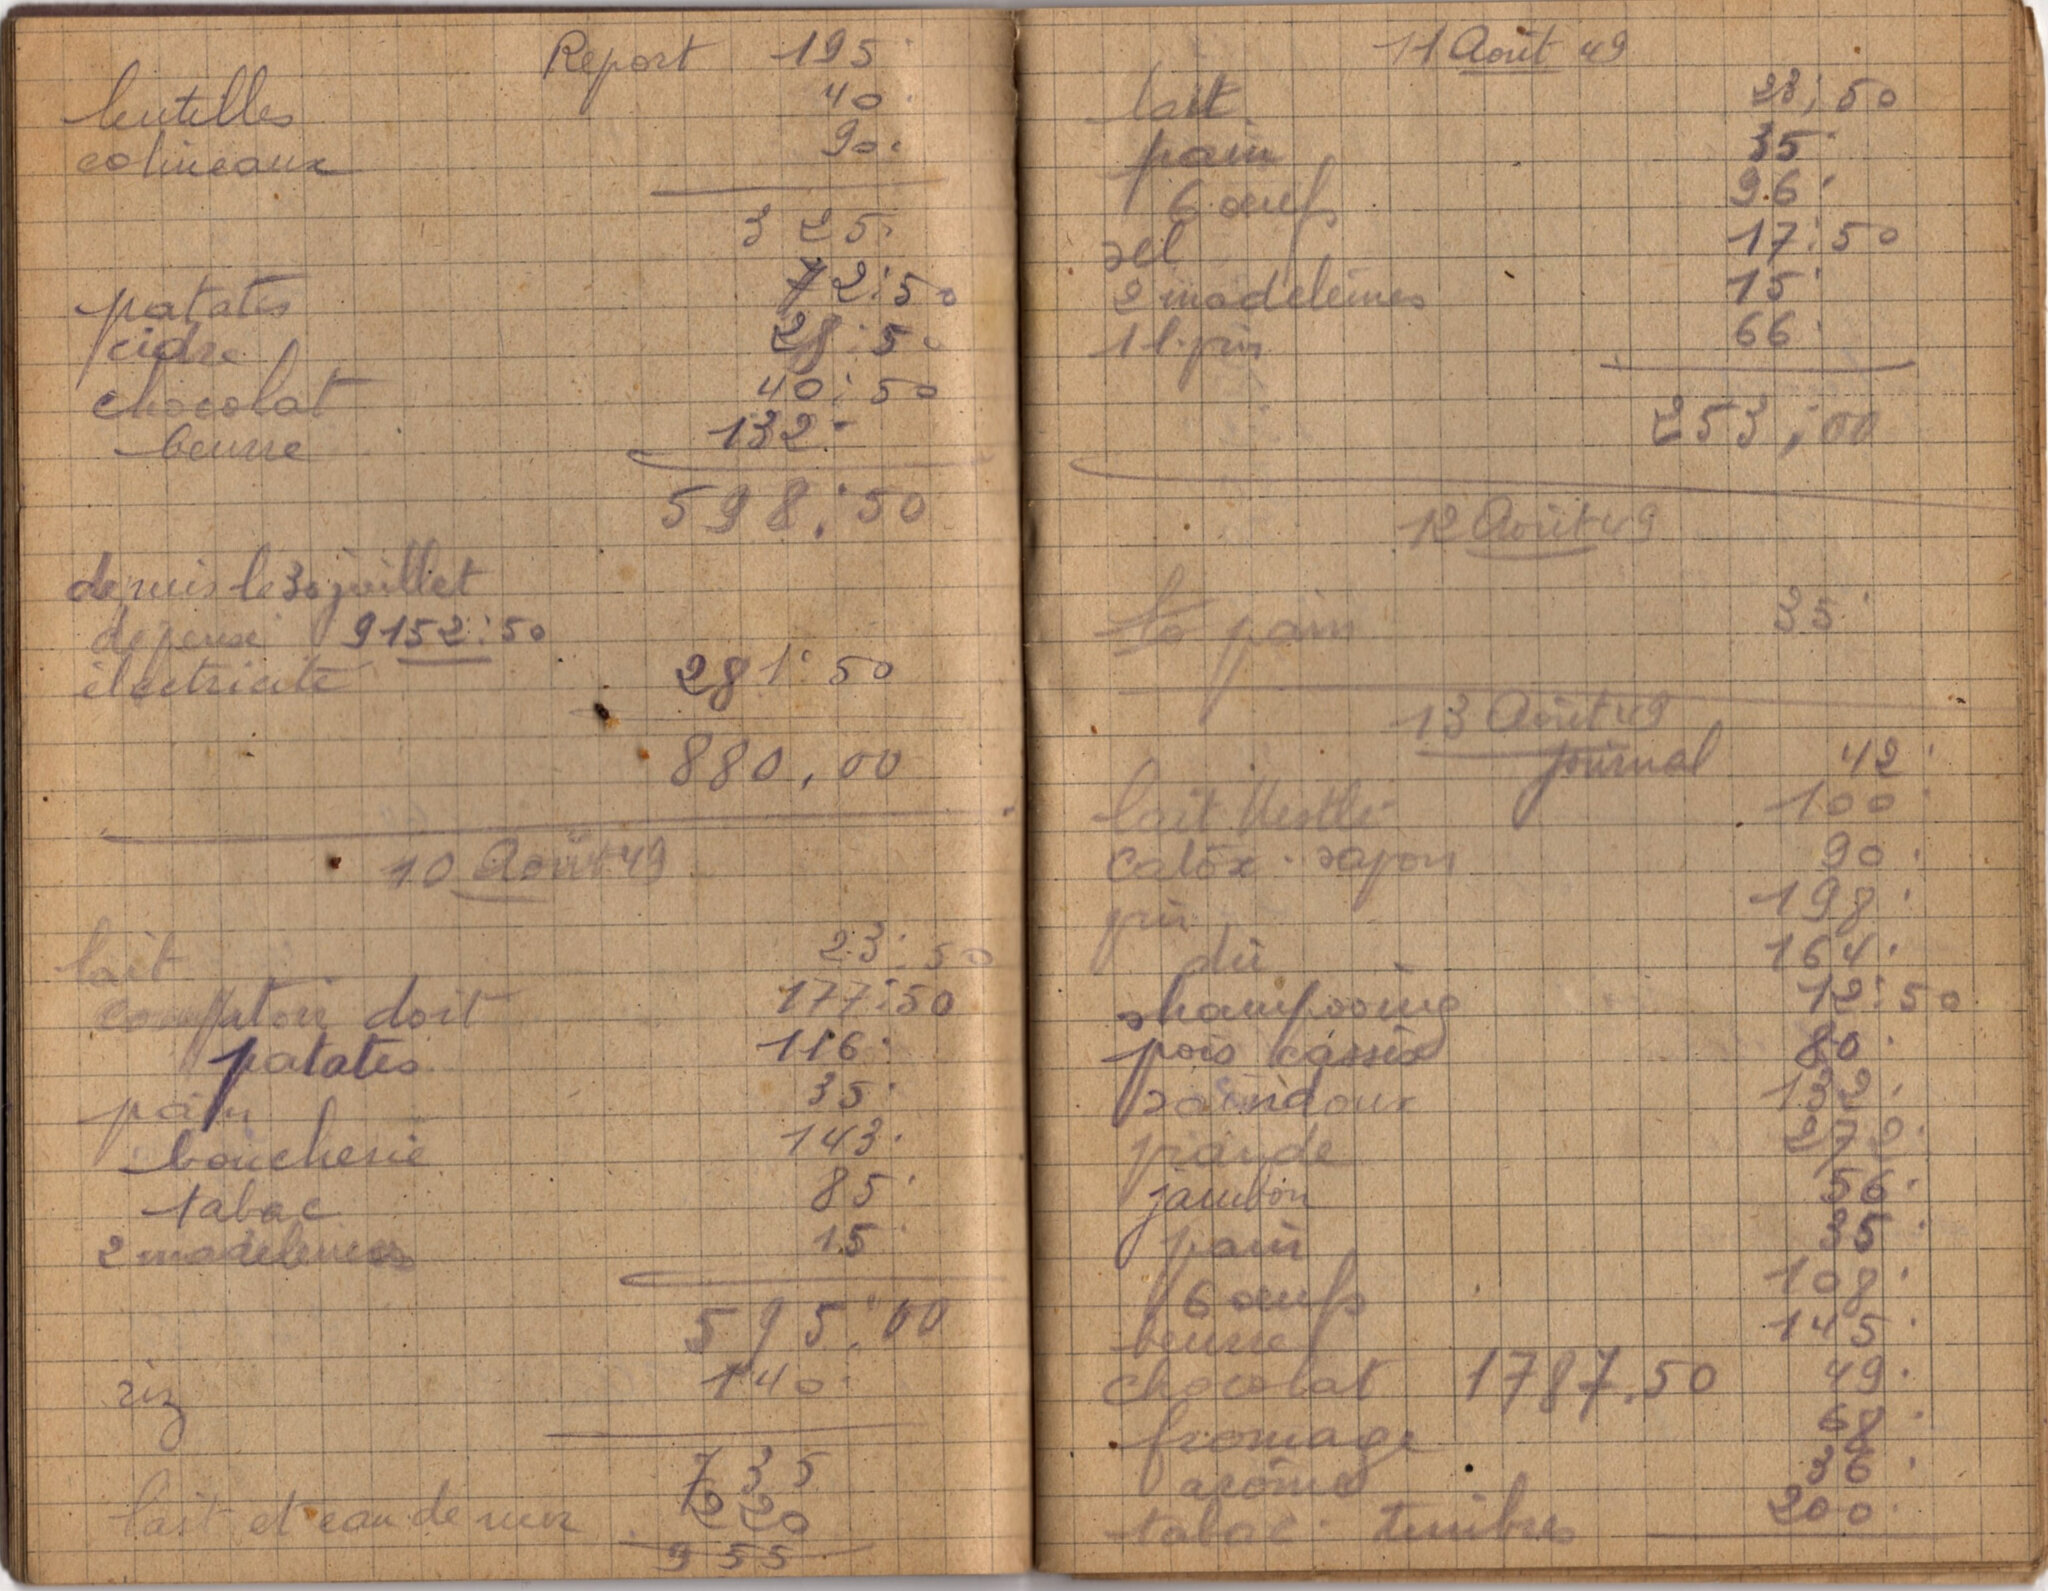 Report 195
lentelles 40
colineaux 90
325
patates 72:50
cidre 28:50
chocolat 40:50
beurre 132
598:50
depuis le 30 juillet
depensé 9152:50
électricité 281:50
880,00
10 Août 49
lait 23:50
comptoir doit 177:50
patates 116
pain 35
boucherie 143
tabac 85
2 madeleines 15
595:00
riz 140
735
lait et eau de mer 220
955
11 Août 49
lait 23:50
pain 35
6 œufs 96
sel 17:50
2 madeleines 15
1 l. pin 66
253,00
12 Août 49
le pain 35
13 Août 49
journal 42
lait Nestlé 100
catox savon 90
pin 198
dû 164
shampooing 12:50
pois cassés 80
saindoux 132
viande 272
jambon 56
pain 35
6 œufs 108
beurre 145
chocolat 1787.50 49
fromage 68
arôme 36
tabac timbres 200